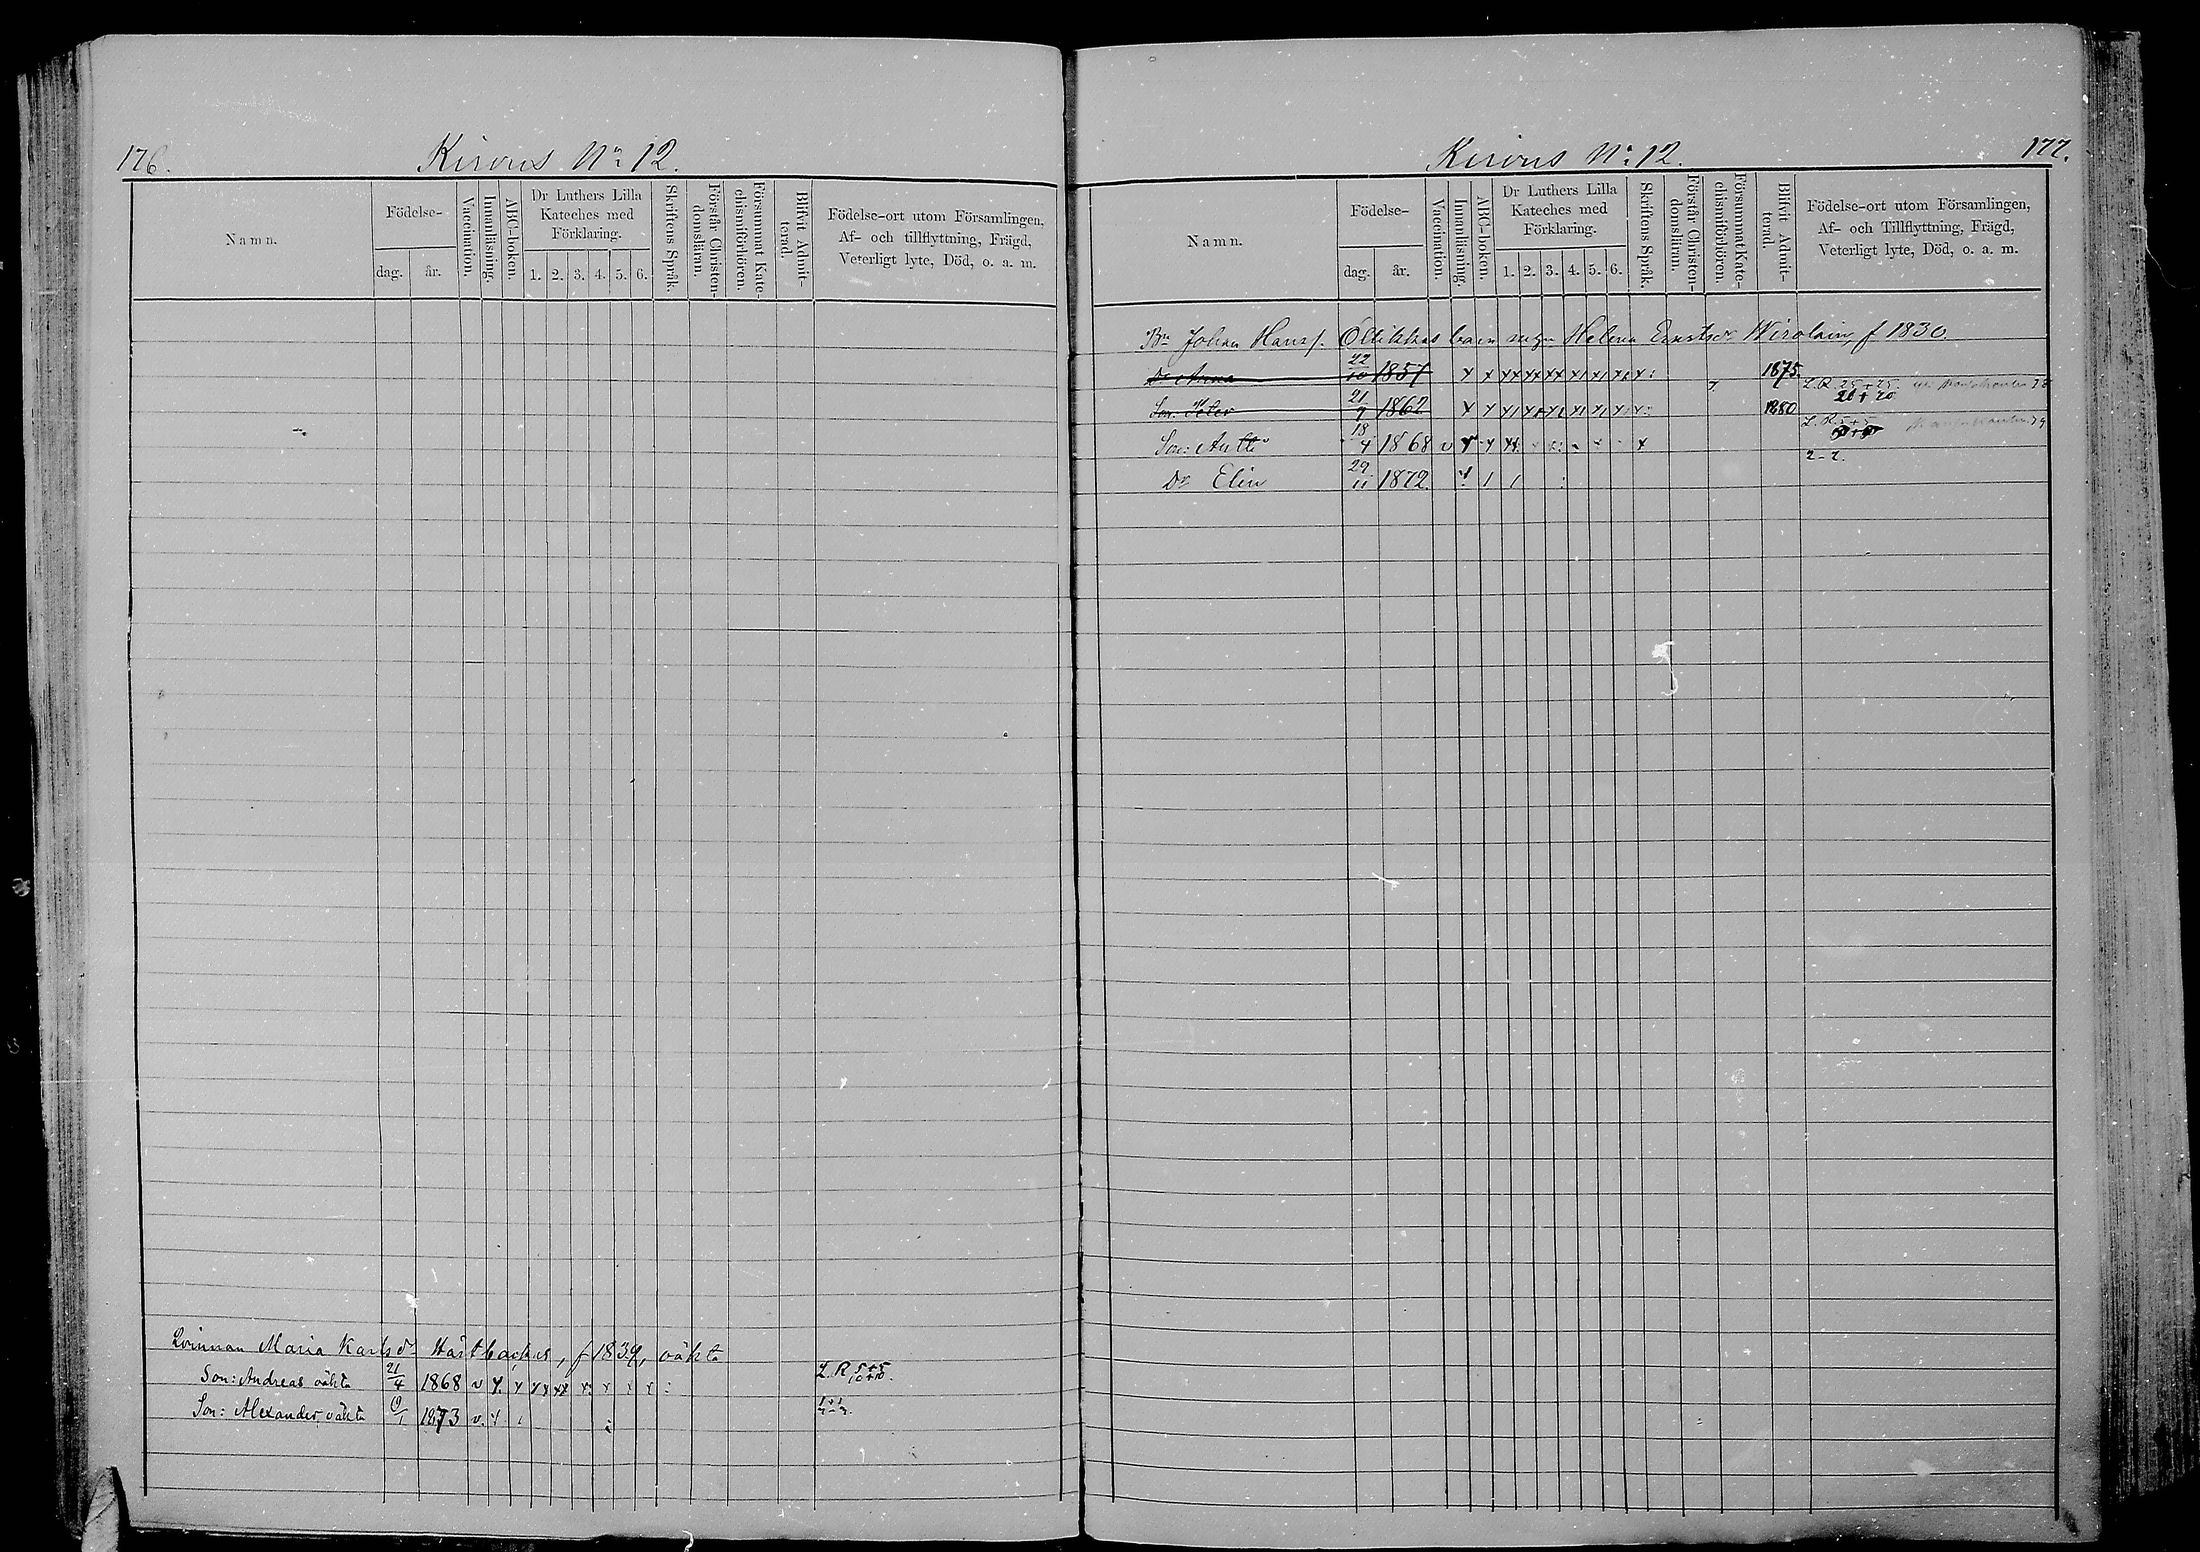 176.
Kirvus No 12.
Namn.
Födelse-
dag.
år.
Vaccination.
Innanläsning.
ABC-boken.
Dr Luthers Lilla
Kateches med
Förklaring.
1. 2. 3. 4. 5. 6.
Skriftens Språk.
Förstår Christen-
domsläran.
Försummat Kate-
chismiförhören.
Blifvit Admit-
terad.
Födelse-ort utom Församlingen,
Af- och tillflyttning, Frägd,
Veterligt lyte, Död, o. a. m.
Qvinnan Maria Karlsdr, f 1839, oäkta
Son: Andreas oäkta 21/4 1868 v L. R 5+5
Son: Alexander, oäkta 1873 v.
Kirvus No 12.
177.
Namn.
Födelse-
dag.
år.
Vaccination.
Innanläsning.
ABC-boken.
Dr Luthers Lilla
Kateches med
Förklaring.
1. 2. 3. 4. 5. 6.
Skriftens Språk.
Förstår Christen-
domsläran.
Försummat Kate-
chismiförhören.
Blifvit Admit-
terad.
Födelse-ort utom Församlingen,
Af- och Tillflyttning, Frägd,
Veterligt lyte, Död, o. a. m.
Bn Johan Hanss. Ollikkas barn Helena Ernstsdr Wirolain, f 1830.
Dr Anna 22/10 1857 1875. L. R. 25+25.
Son: Peter 21/9 1862 1880 L. R. 5+5
Son: Antti 18/4 1868 v 2-2.
Dr Elin 29/11 1872.